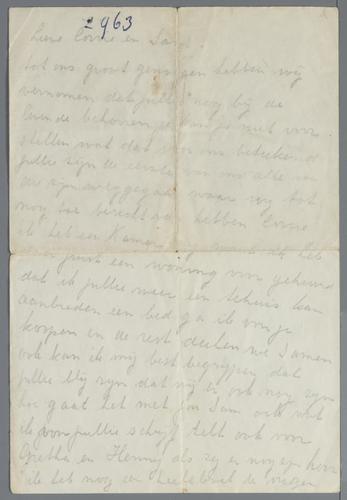 ± 963
Lieve Corrie en Sam
tot ons groot genoegen hebben wij
vernomen dat jullie nog bij de
levende behooren je kan je niet voor
stellen wat dat voor ons beteekend
jullie zijn de eerste van ons alle
die zijn weggegaan waar wij tot
nog toe bericht van hebben Corrie
ik heb een Kamer
een woning voor
dat ik jullie weer een tehuis kan
aanbieden een bed ga ik voor je
koopen en de rest deelen we Samen
ook kan ik mij best begrijpen dat
jullie blij zijn dat wij er ook nog zijn
hoe gaat het met jou Sam ook wat
ik voor jullie schrijf telt ook voor
Gretha en Henny als zij er nog zijn hoor
ik heb nog een heeleboel te vragen